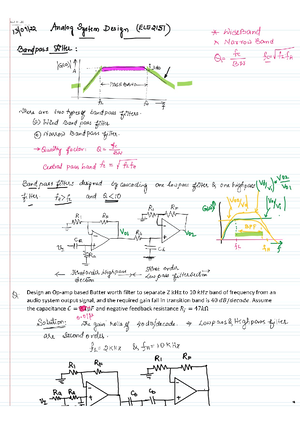 13/07/22 Analog System Design (ECE2157)
* Wideband
* Narrow Band
Q = fc/BW fc = √fL fH
Bandpass filter:
|G(jω)|
3dB
A
Pass Band
fL fH
There are two types of bandpass filters.
(1) Wide Band pass filter
(2) Narrow Band pass filter.
→ Quality factor: Q = fc/BW
Central pass band fc = √fL fH
Band pass filter designed by cascading one low pass filter & one high pass
filter fH > fL and Q < 10
R1 RF R1 RF
Vo1 Vo2
C2 R2 C3
BPF
fL fH f
section Low pass filter section
Q: Design an Op-amp based Butter worth filter to separate 2 kHz to 10 kHz band of frequency from an
audio system output signal, and the required gain fall in transition band is 40 dB/decade. Assume
the capacitance C = and negative feedback resistance Rf = 47kΩ
Solution: The gain rolls off 40dB/decade. → Low pass & High pass filter
are second order.
fL = 2KHz & fH = 10KHz
R1 RF R1 RF